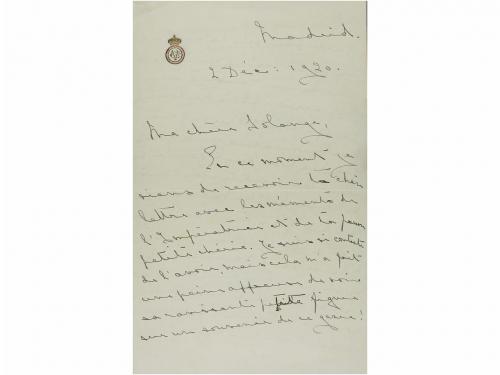 Madrid.
2 Déc: 1920.
Ma chère Solange,
En ce moment je
viens de recevoir ta chère
lettre avec les mémento de
l'Impératrice et de ta pauvre
petite chérie. Je suis si contente
de l'avoir, mais cela m'a fait
une peine affreuse de voir
sa ravissante petite figure
sur un souvenir de ce genre!